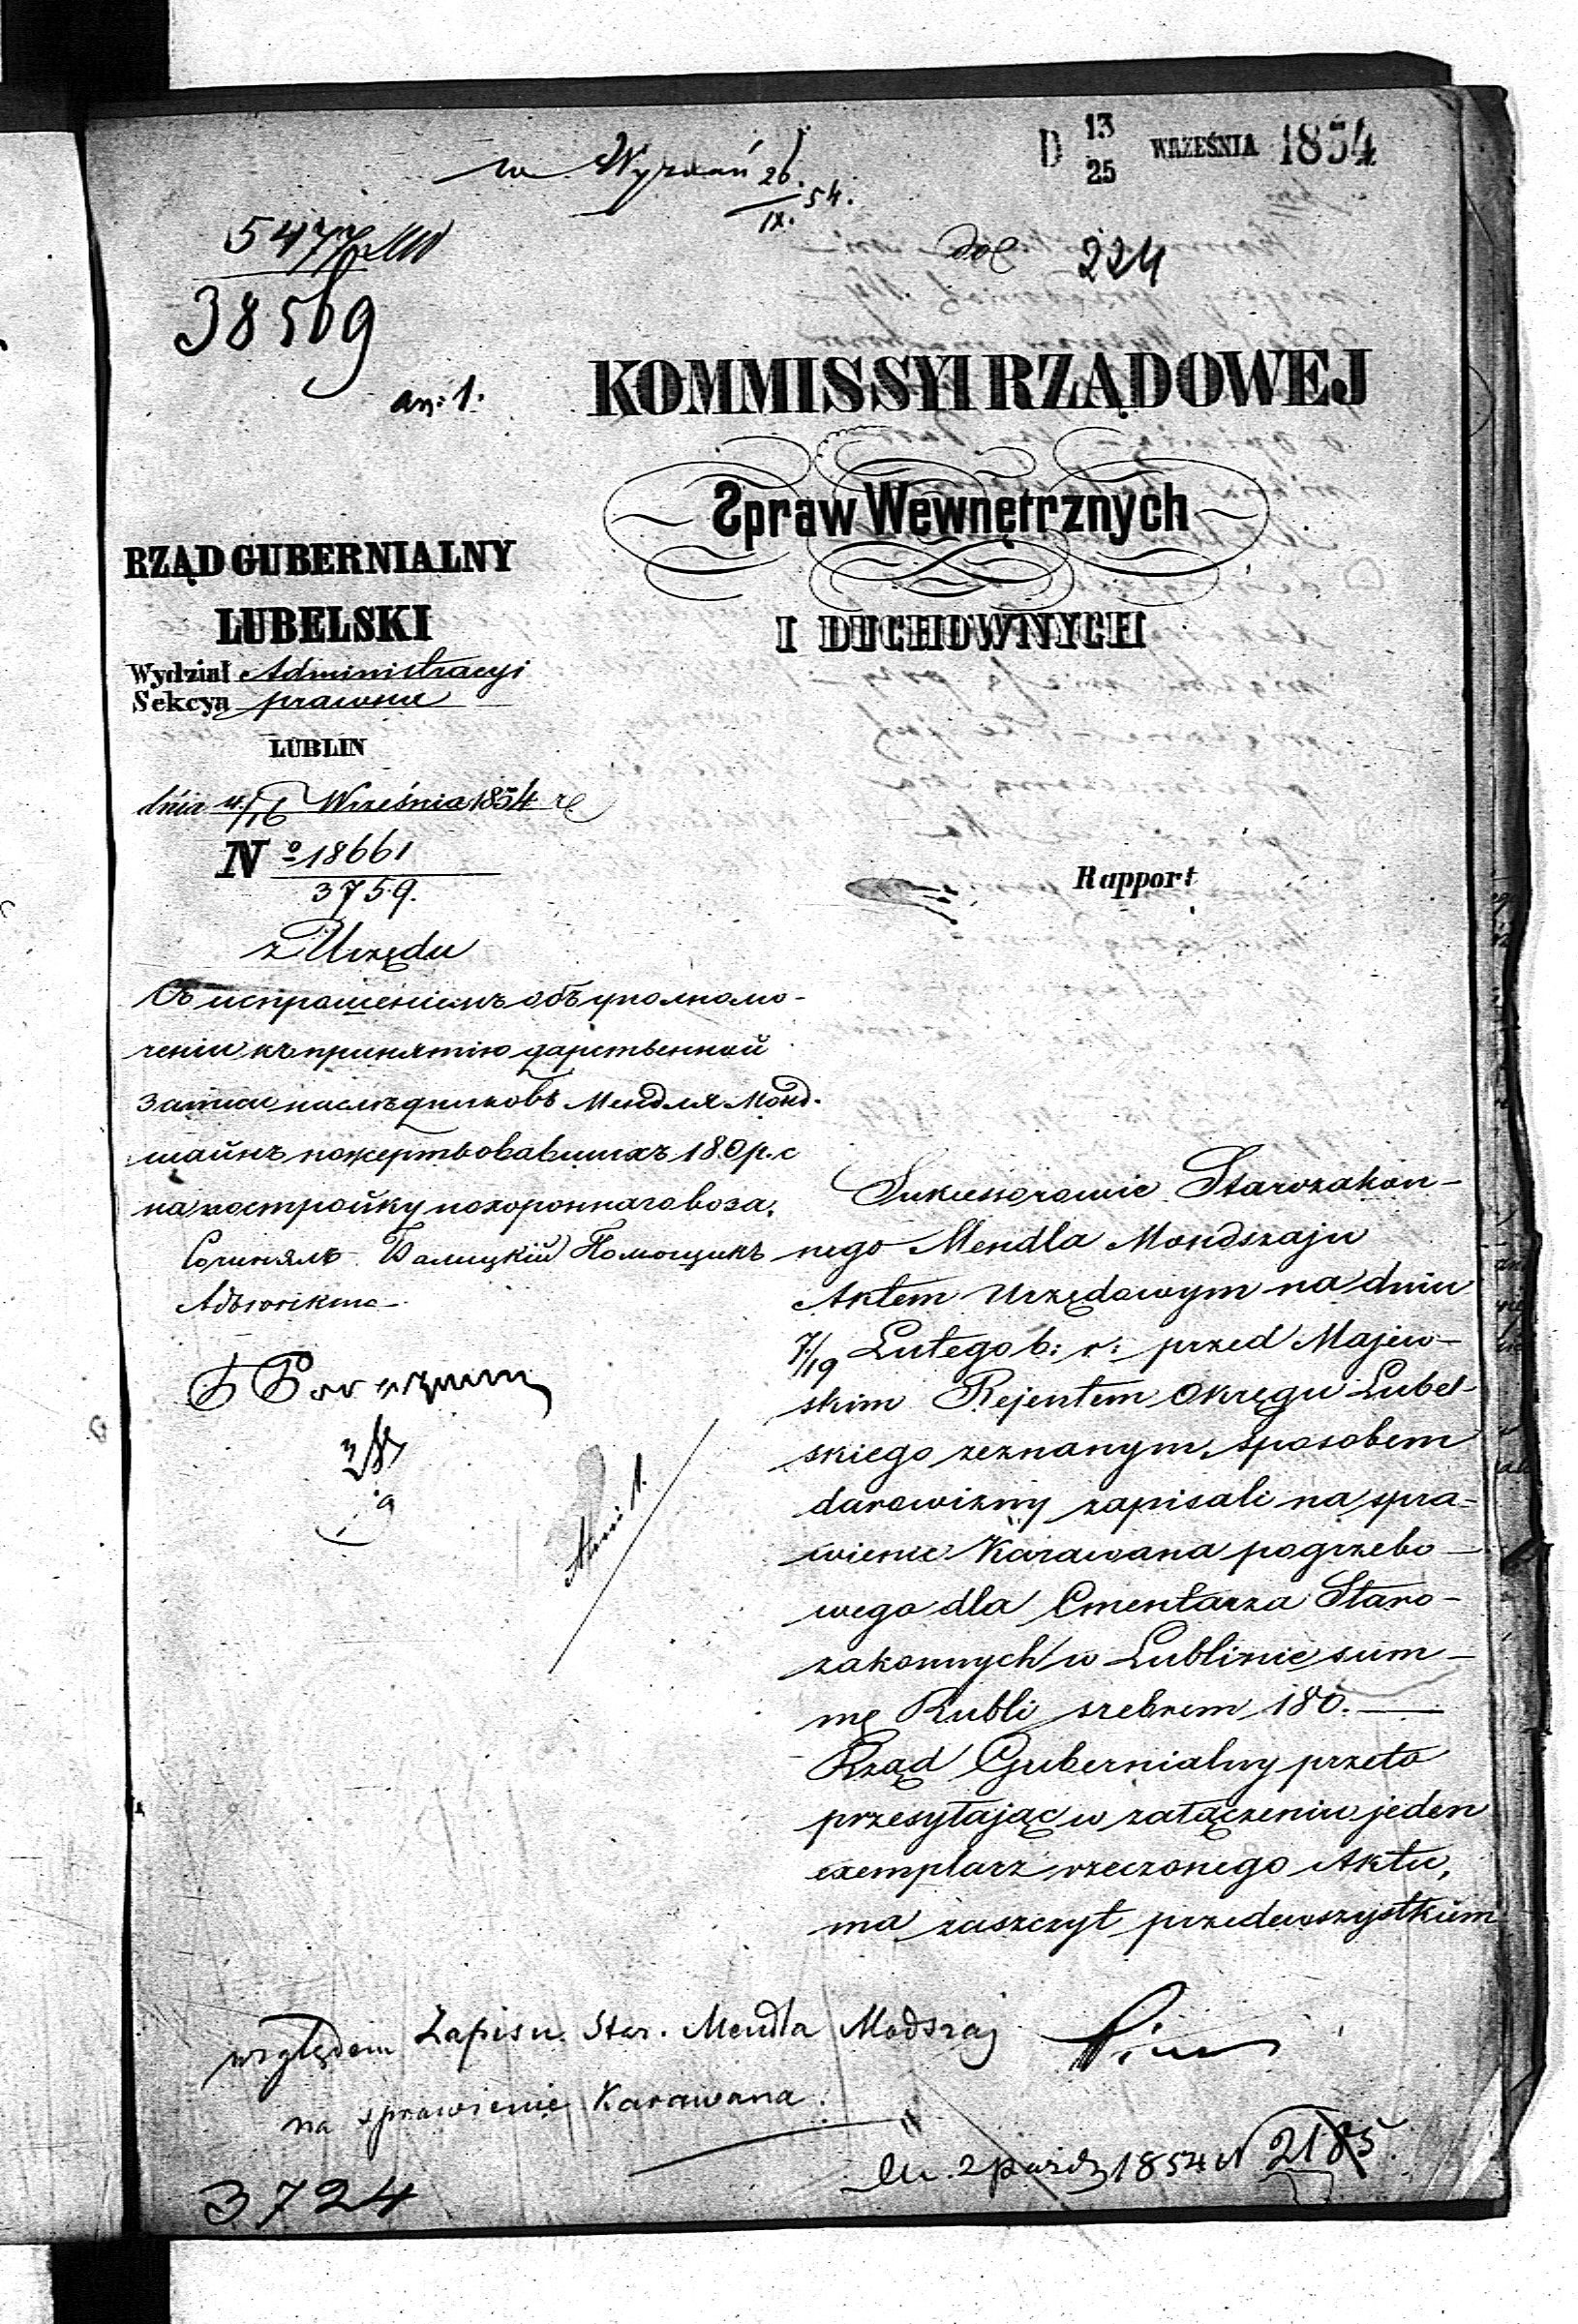 D 13/25 WRZEŚNIA 1854
w Wyznań 26/IX. 54.
38569
an: 1.
224
KOMMISSYI RZĄDOWEJ
Spraw Wewnętrznych
I DUCHOWNYCH
RZĄD GUBERNIALNY
LUBELSKI
Wydział Administracyi
Sekcya prawna
LUBLIN
dnia 4/16 Września 1854 r.
No 18661
3759.
z Urzędu
Rapport
Съ испрошеніемъ объ уполномо-
ченіи къ принятію дарственной
записи наслѣдниковъ Мендля Монд-
шайнъ пожертвовавшихъ 180 р. с
на постройку похороннаго воза.
Сочинялъ Помощникъ
Sukcessorowie Starozakon-
nego Mendla Mondszajn
Aktem Urzędowym na dniu
7/19 Lutego b: r: przed Majew-
skim Rejentem Okręgu Lubel-
skiego zeznanym, sposobem
darowizny zapisali na spra-
wienie Karawana pogrzebo-
wego dla Cmentarza Staro-
zakonnych w Lublinie sum-
mę Rubli srebrem 180.
Rząd Gubernialny przeto
przesyłając w załączeniu jeden
exemplarz rzeczonego Aktu,
ma zaszczyt przedewszystkiem
względem Zapisu Star. Mendla Modszaj
na sprawienie Karawana.
2 paźdz 1854 N 2185
3724